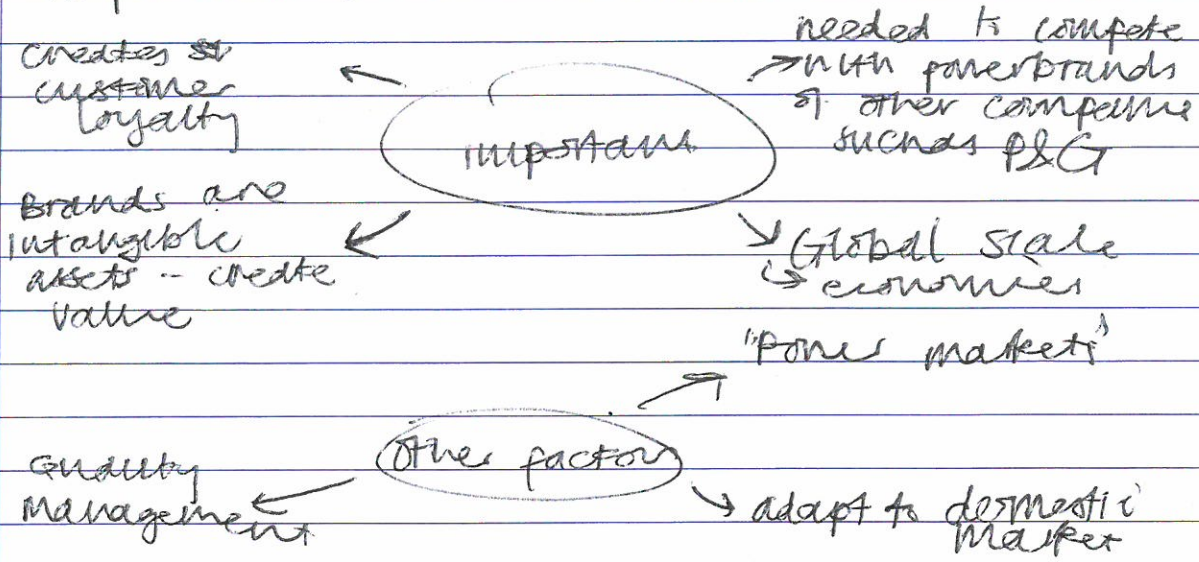 creates
customer
loyalty
important
needed to compete
with powerbrands
of other companies
such as P&G
Brands are
intangible
assets - create
value
Global scale
economies
"Power markets"
Other factors
Quality
Management
adapt to domestic
market